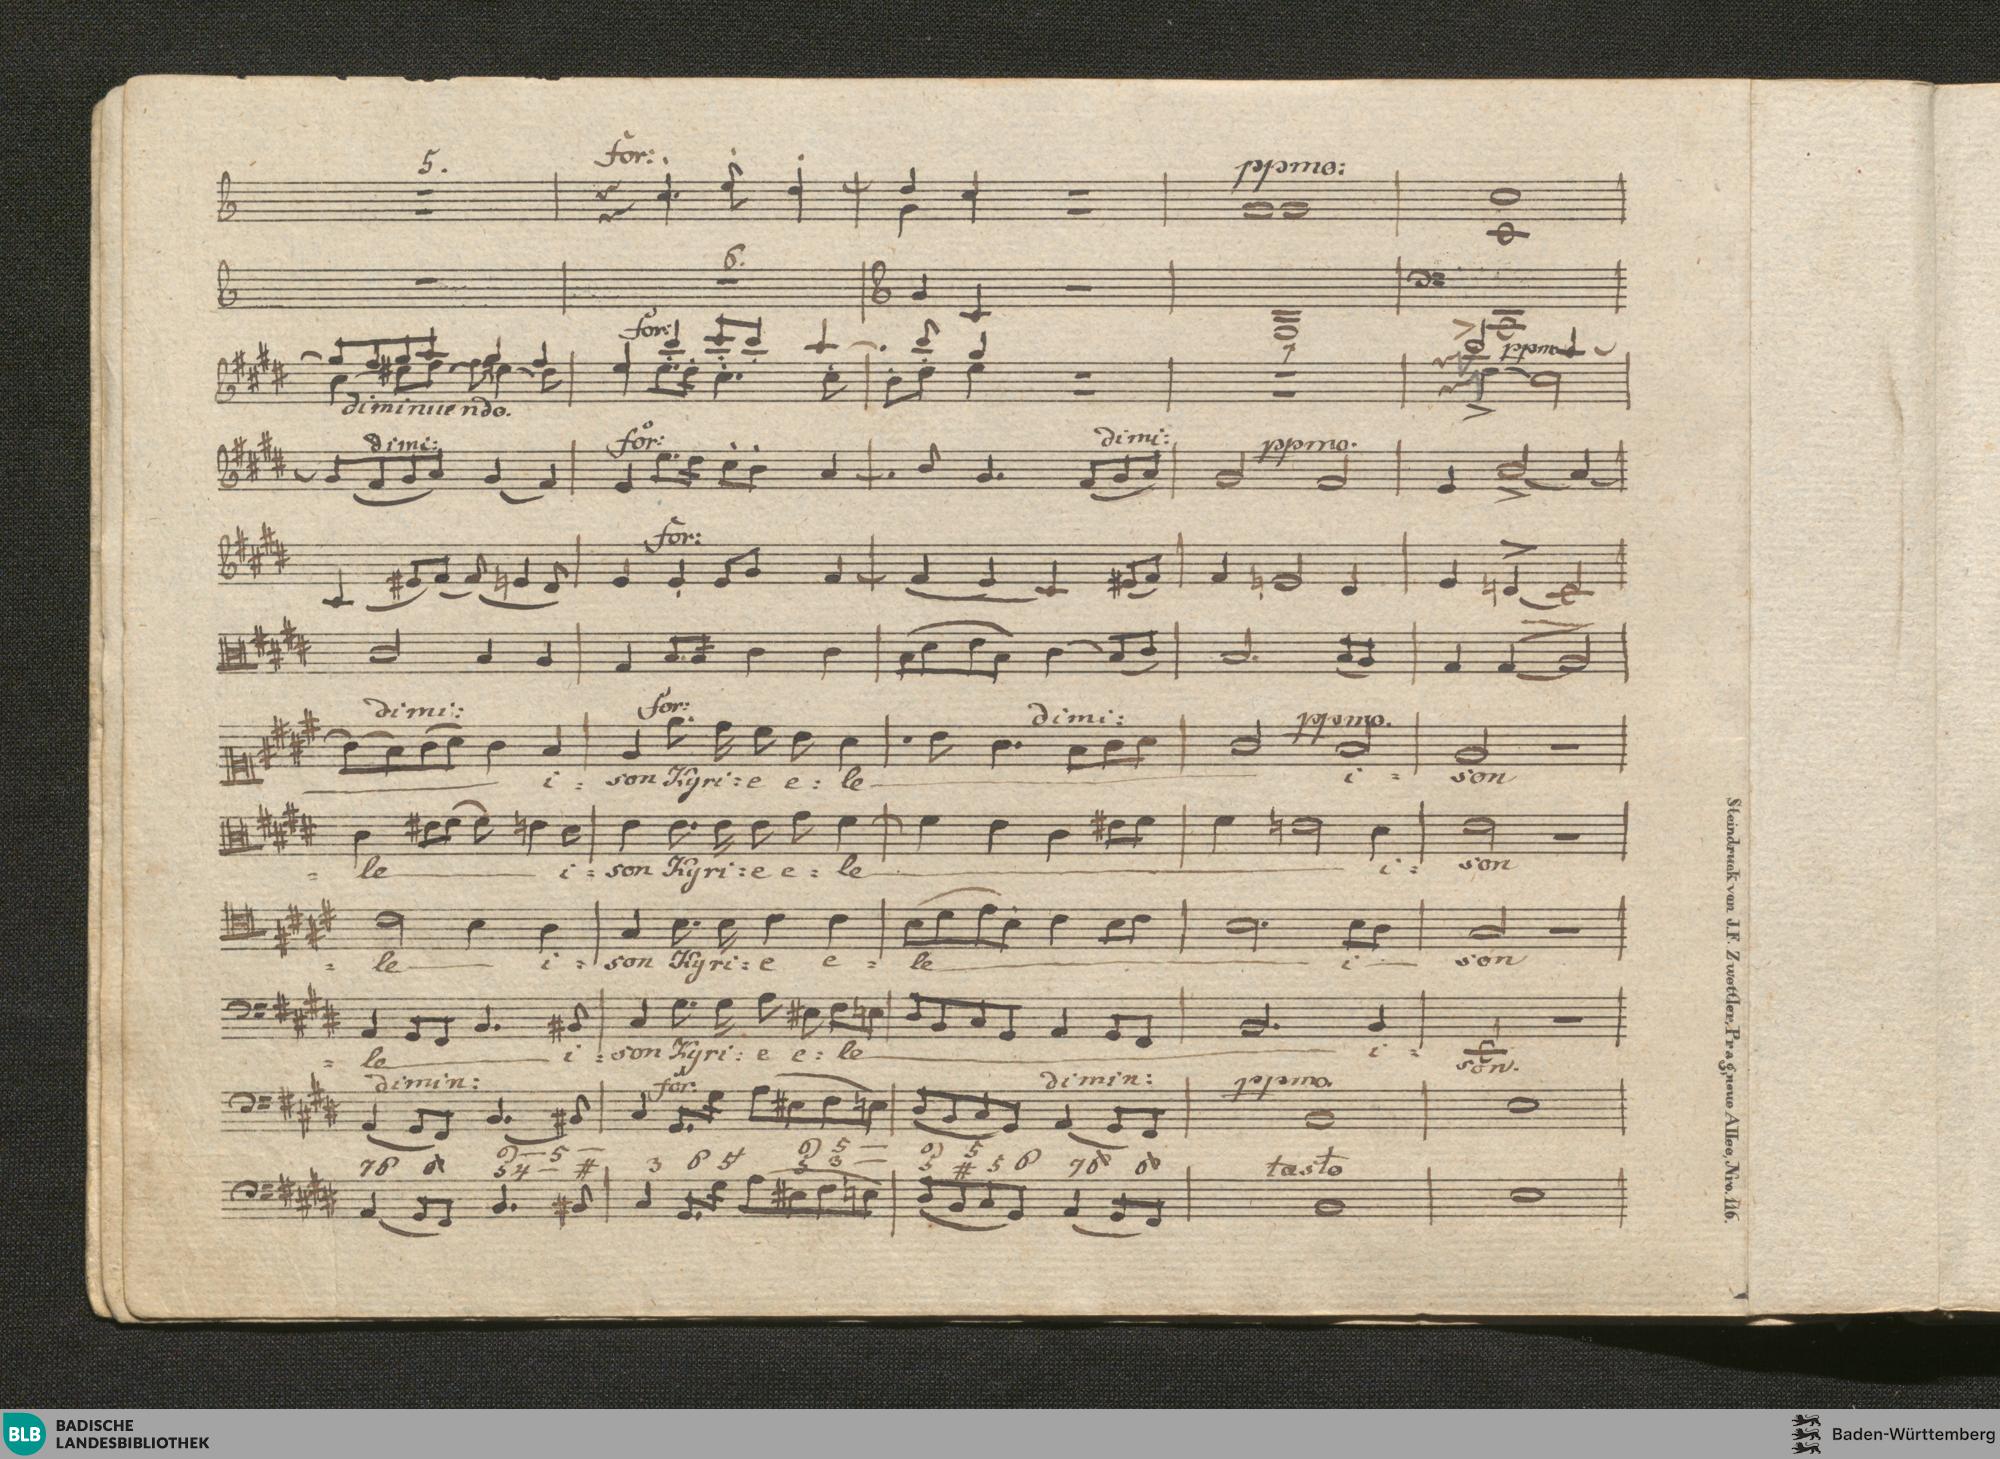 5. for: ppmo:
6.
for: ppmo
diminuendo.
dimi: for: dimi: ppmo.
for:
dimi: for: dimi: ppmo.
i = son Kyri: e e: le i = son
= le i = son Kyri: e e: le i = son
= le i = son Kyri: e e = le i son
= le i = son Kyri: e e: le i = son.
dimin: for: dimin: ppmo.
76 5 4 5 # 3 6 5 5 3 5 # 5 6 76 tasto
Steindruck von J.F. Zwettler, Prag, neue Allee, Nro. 116.
BLB BADISCHE LANDESBIBLIOTHEK
Baden-Württemberg